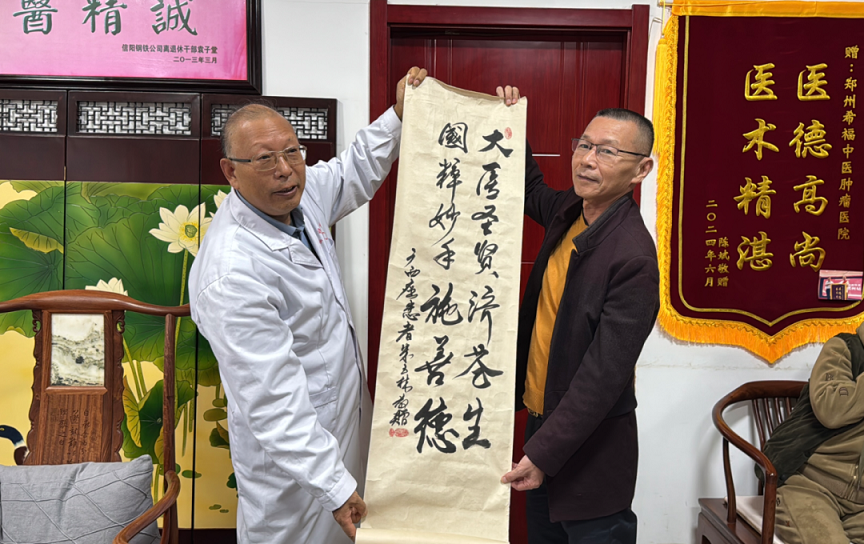 醫精誠
信阳钢铁公司离退休干部袁子堂
二〇一三年三月
大医圣贤济苍生
國輝妙手施善德
赠：郑州希福中医肿瘤医院
医德高尚
医术精湛
陈斌敬赠
二〇二四年六月